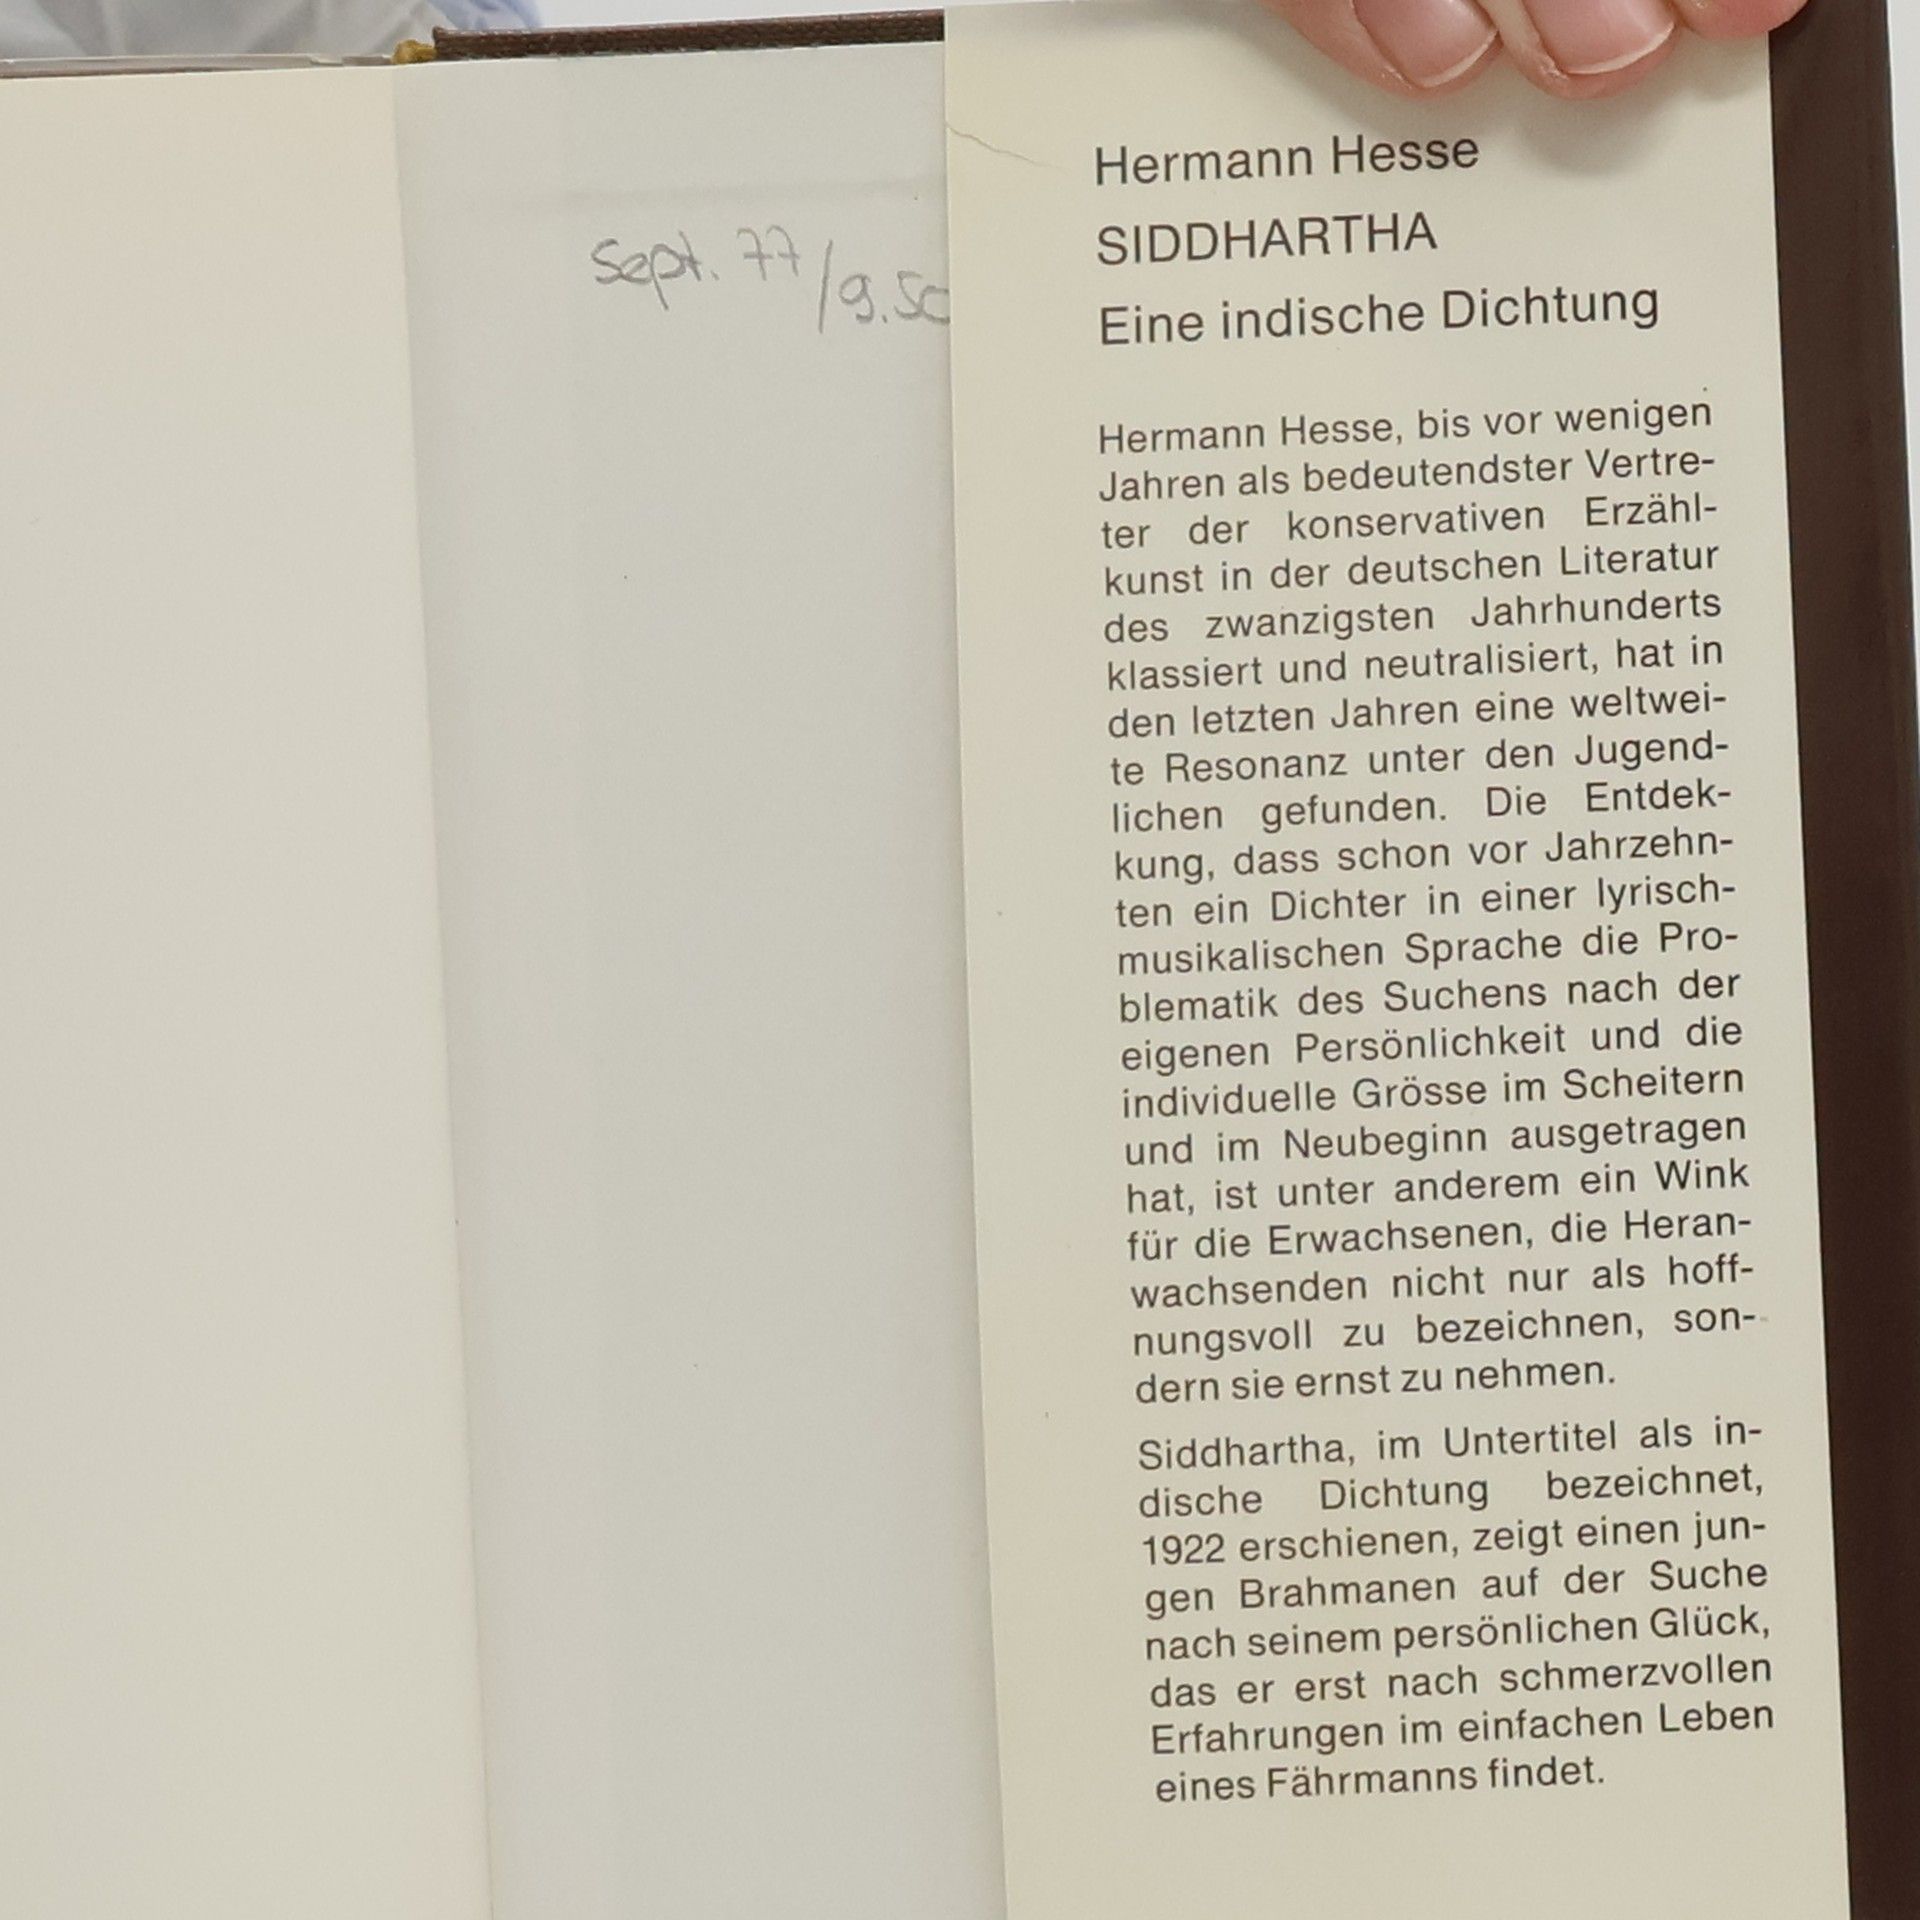 Sept. 77/9.50
Hermann Hesse
SIDDHARTHA
Eine indische Dichtung
Hermann Hesse, bis vor wenigen
Jahren als bedeutendster Vertre-
ter der konservativen Erzähl-
kunst in der deutschen Literatur
des zwanzigsten Jahrhunderts
klassiert und neutralisiert, hat in
den letzten Jahren eine weltwei-
te Resonanz unter den Jugend-
lichen gefunden. Die Entdek-
kung, dass schon vor Jahrzehn-
ten ein Dichter in einer lyrisch-
musikalischen Sprache die Pro-
blematik des Suchens nach der
eigenen Persönlichkeit und die
individuelle Grösse im Scheitern
und im Neubeginn ausgetragen
hat, ist unter anderem ein Wink
für die Erwachsenen, die Heran-
wachsenden nicht nur als hoff-
nungsvoll zu bezeichnen, son-
dern sie ernst zu nehmen.
Siddhartha, im Untertitel als in-
dische Dichtung bezeichnet,
1922 erschienen, zeigt einen jun-
gen Brahmanen auf der Suche
nach seinem persönlichen Glück,
das er erst nach schmerzvollen
Erfahrungen im einfachen Leben
eines Fährmanns findet.